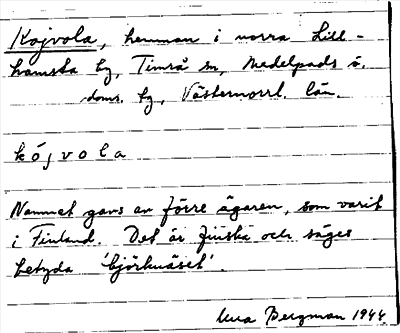 Kojvola, hemman i norra Lill-
hamsta by, Timrå sn, Medelpads ö.
doms. hg, Västernorrl. län.
kójvola
Namnet gavs av förre ägaren, som varit
i Finland. Det är finska och säges
betyda 'björknäset'.
Bergman 1944